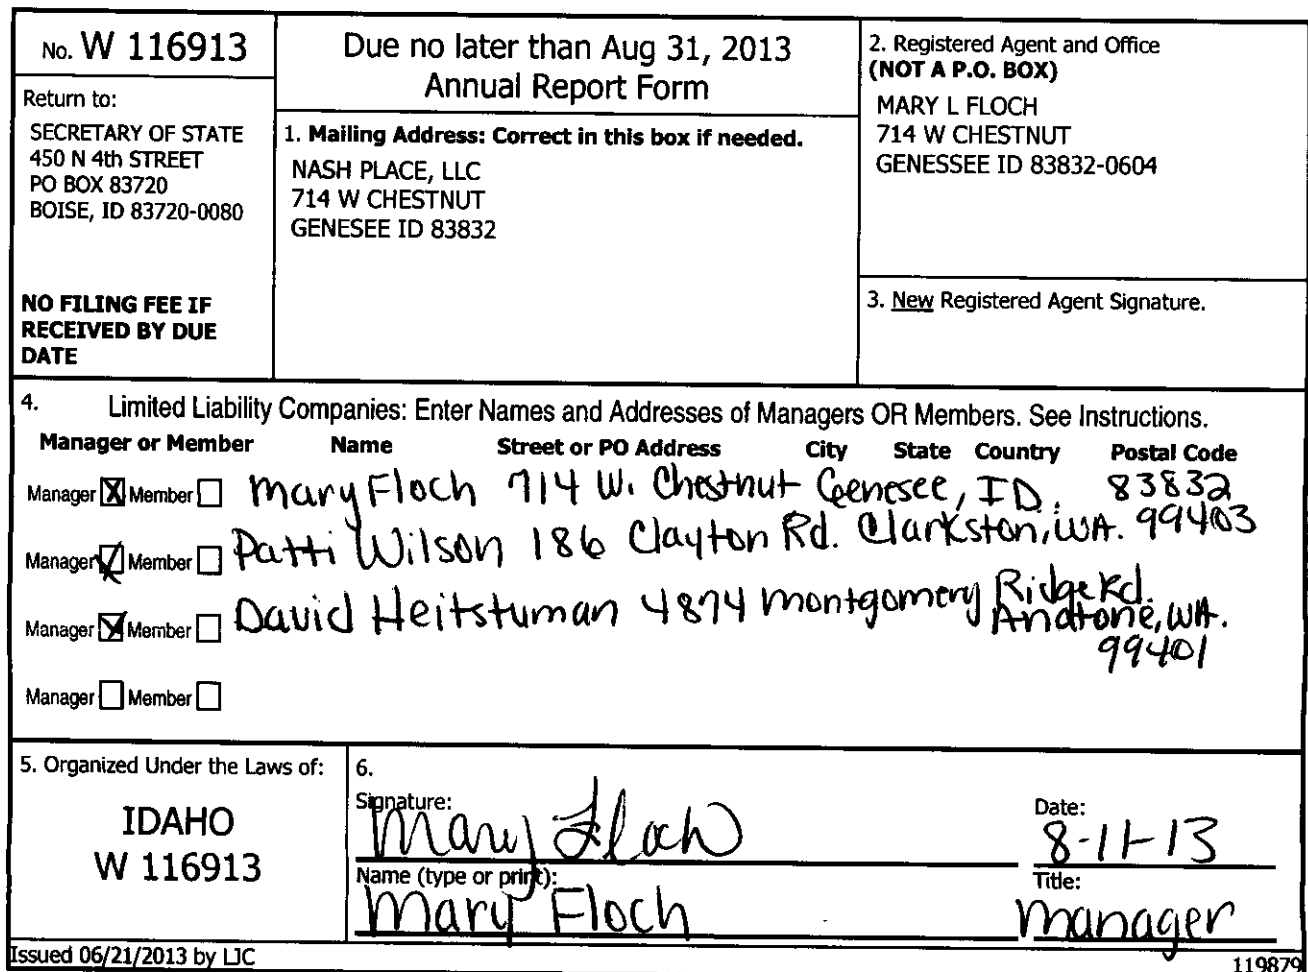 No. W 116913
Return to:
SECRETARY OF STATE
450 N 4th STREET
PO BOX 83720
BOISE, ID 83720-0080
NO FILING FEE IF
RECEIVED BY DUE
DATE
Due no later than Aug 31, 2013
Annual Report Form
1. Mailing Address: Correct in this box if needed.
NASH PLACE, LLC
714 W CHESTNUT
GENESEE ID 83832
2. Registered Agent and Office
(NOT A P.O. BOX)
MARY L FLOCH
714 W CHESTNUT
GENESSEE ID 83832-0604
3. New Registered Agent Signature.
4. Limited Liability Companies: Enter Names and Addresses of Managers OR Members. See Instructions.
Manager or Member Name Street or PO Address City State Country Postal Code
Manager X Member Mary Floch 714 W. Chestnut Genesee, ID. 83832
Manager Member Patti Wilson 186 Clayton Rd. Clarkston, WA. 99403
Manager X Member David Heitstuman 4874 Montgomery Ridge Rd.
Anatone, WA.
99401
Manager Member
5. Organized Under the Laws of:
IDAHO
W 116913
6.
Signature: Mary Floch
Date: 8-11-13
Name (type or print): Mary Floch
Title: Manager
Issued 06/21/2013 by LJC
119879